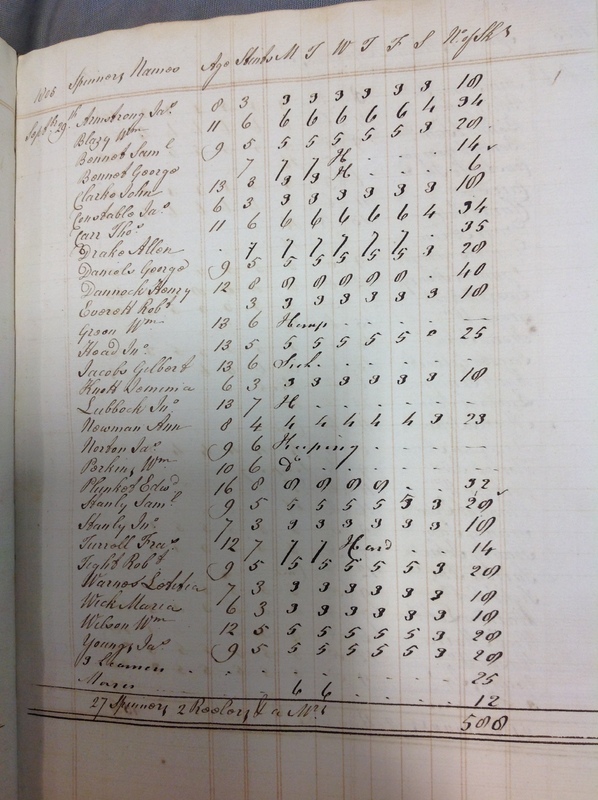 1806 Spinners Names Age Stints M T W T F S No of Sks
Septr 29th Armstrong Jas. 8 3 3 3 3 3 3 3 18
Blazy Wm 11 6 6 6 6 6 6 4 34
Bennet Saml 9 5 5 5 5 5 5 3 28
Bennet George 7 7 7 H . . . 14
Clarke John 13 3 3 3 H . . . 6
Constable Jas. 6 3 3 3 3 3 3 3 18
Carr Thos. 11 6 6 6 6 6 6 4 34
Drake Allen . 7 7 7 7 7 7 . 35
Daniels George 9 5 5 5 5 5 5 3 28
Dannock Henry 12 8 8 8 8 8 8 . 40
Everett Robt 3 3 3 3 3 3 3 18
Green Wm 13 6 Hemp . . . . —
Head Jno. 13 5 5 5 5 5 5 0 25
Jacobs Gilbert 13 6 Sick . . . .
Knott Jemima 6 3 3 3 3 3 3 3 18
Lubbock Jno. 13 7 H . . . . .
Newman Ann 8 4 4 4 4 4 4 3 23
Norton Jas. 9 6 Keeping . . . —
Perkins Wm 10 6 do . . . . . —
Plunket Edwd 16 8 8 8 8 8 . . 32
Stanly Saml 9 5 5 5 5 5 5 3 28
Stanly Jno. 7 3 3 3 3 3 3 3 18
Turrell Fras. 12 7 7 7 Hard . . 14
Tight Robt 9 5 5 5 5 5 5 3 28
Warnes Letitia 7 3 3 3 3 3 3 3 18
Wick Maria 6 3 3 3 3 3 3 3 18
Wilson Wm 12 5 5 5 5 5 5 3 28
Youngs Jas. 9 5 5 5 5 5 5 3 28
3 Learners . . . . . . . . 25
6 6 . . . . 12
27 Spinners 2 Reelers & a
588